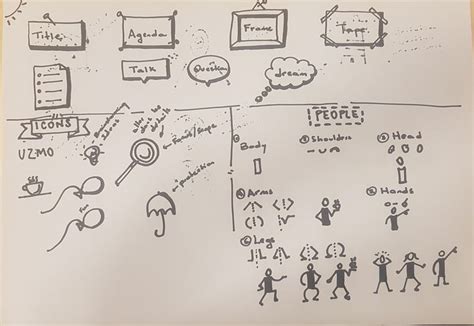 Title
Agenda
Frame
Tape
Talk
dream
ICONS
PEOPLE
UZMO
Focus/Scope
protection
Fun
① Body
② Shoulders
③ Head
④ Arms
⑤ Hands
⑥ Legs